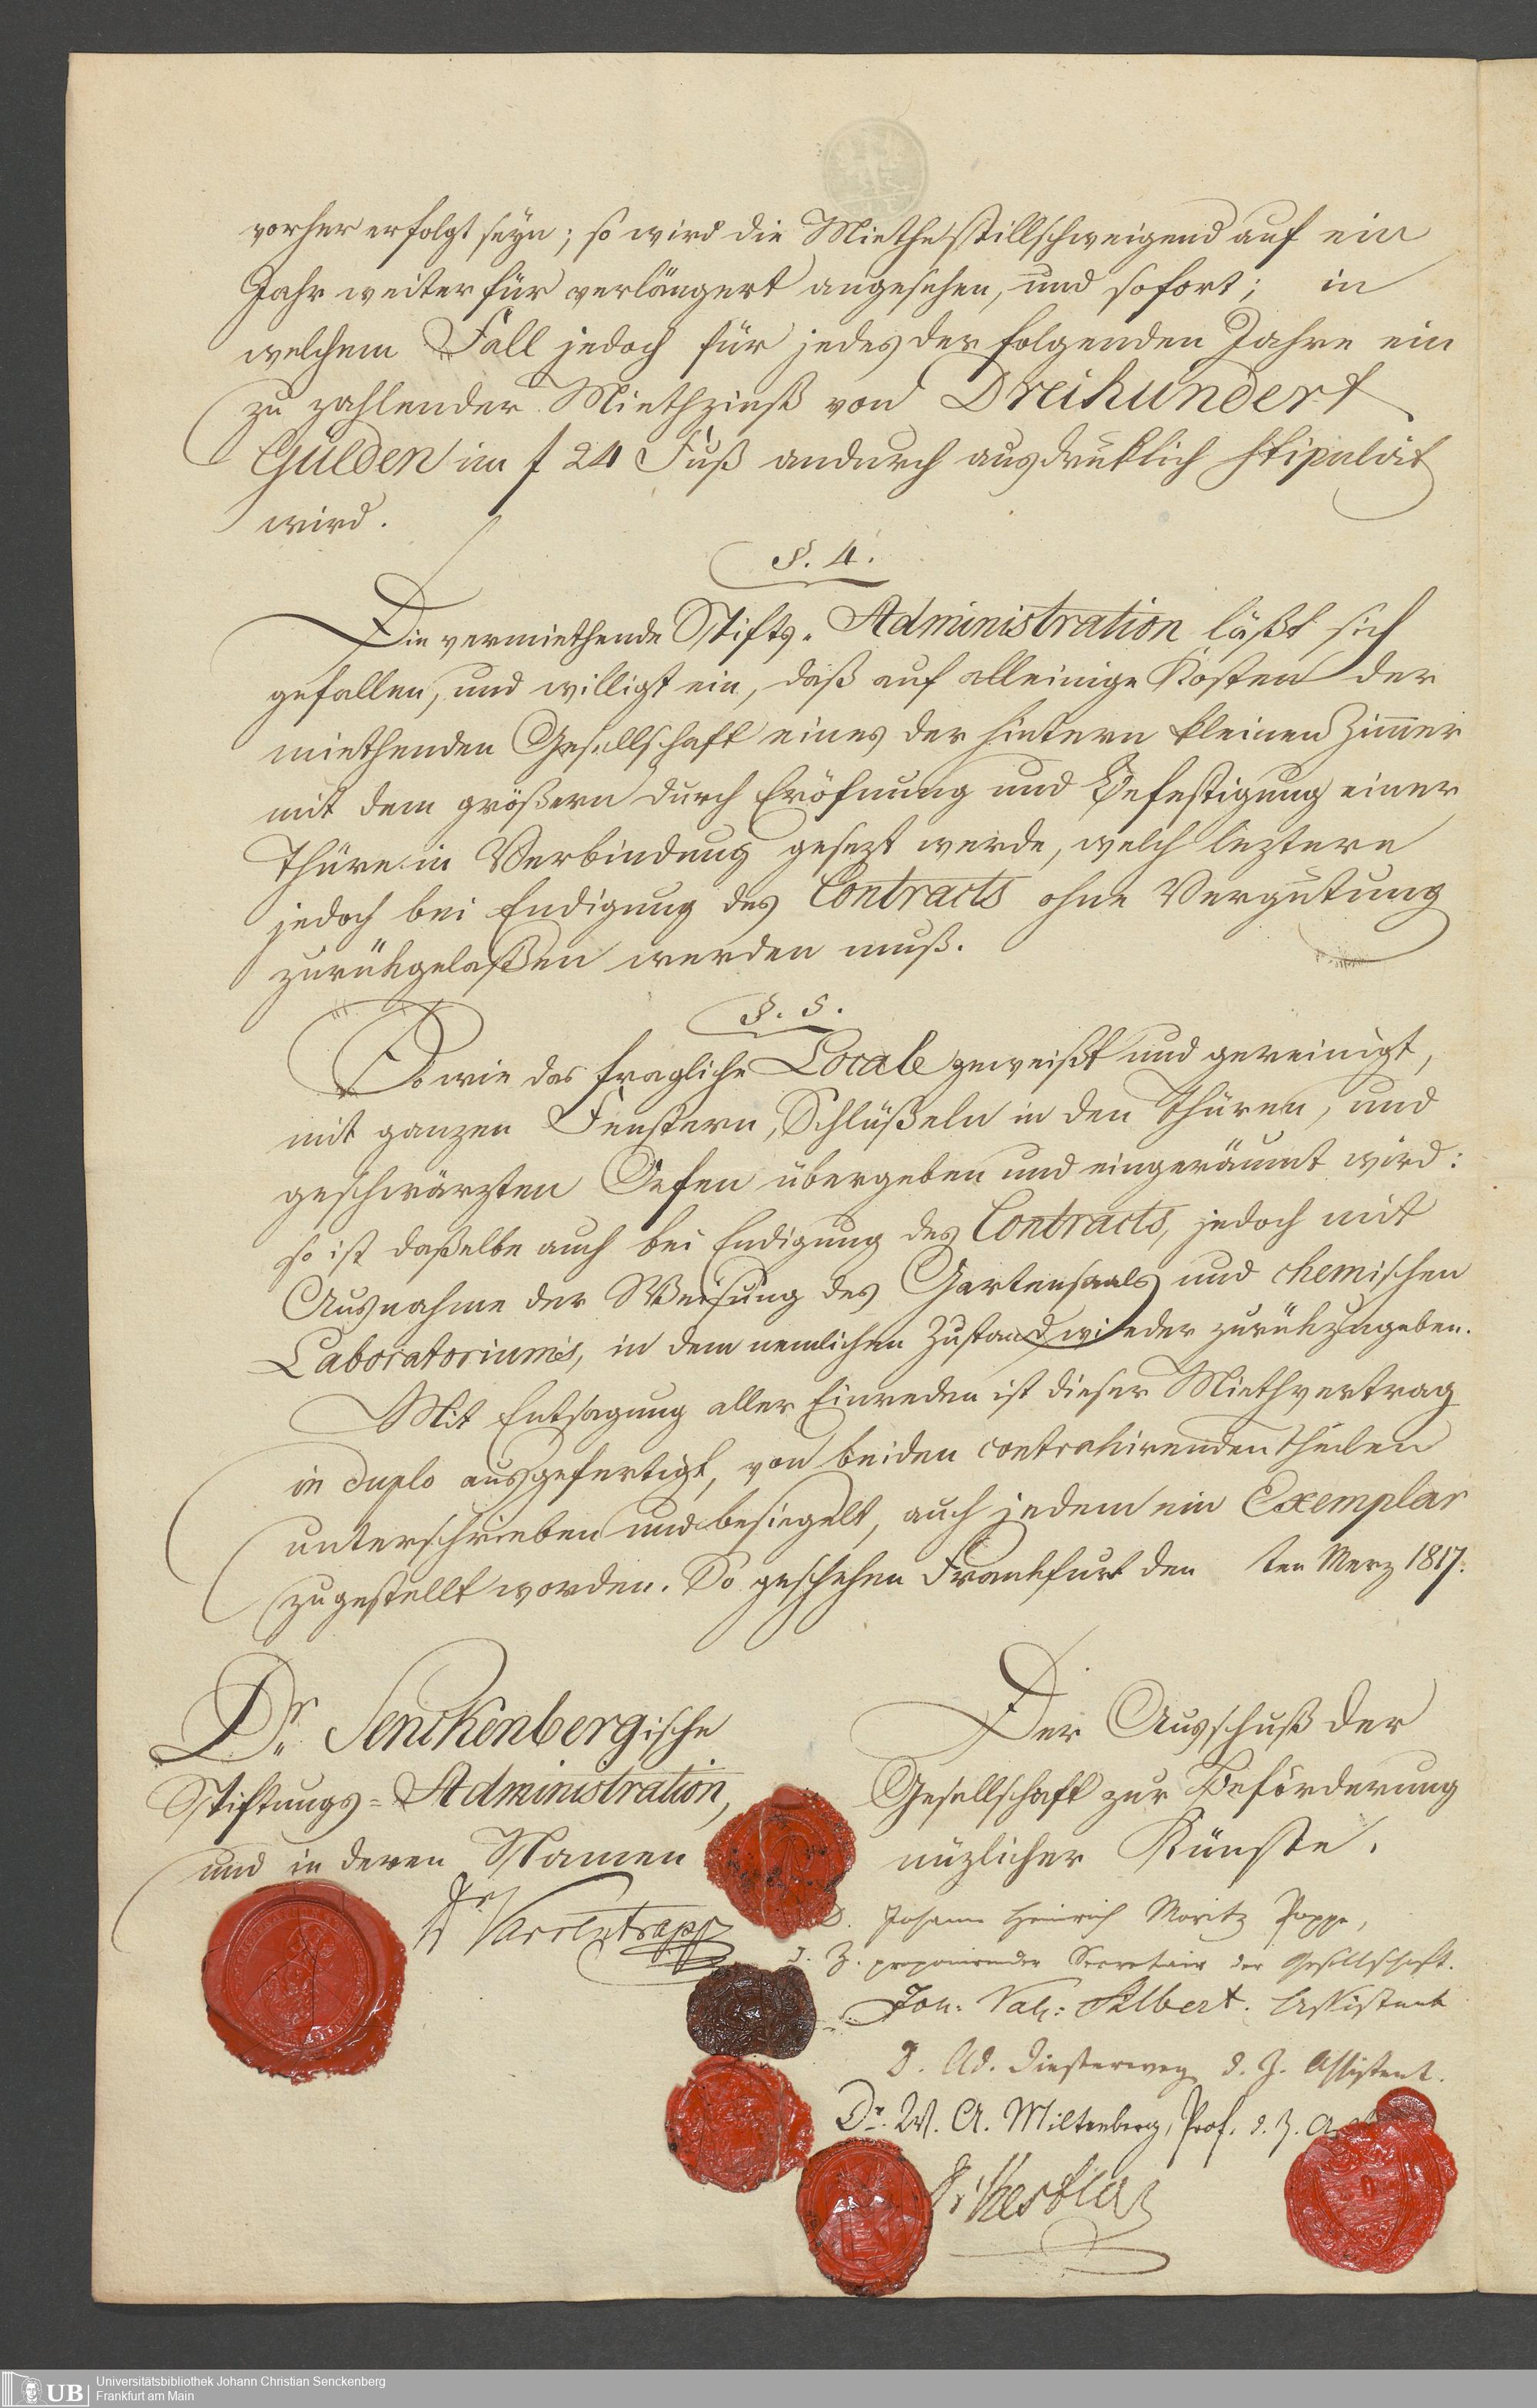 vorher erfolgt seyn; so wird die Miethe stillschweigend auf ein
Jahr weiter für verlängert angesehen, und sofort; in
welchem Fall jedoch für jedes der folgenden Jahre ein
zu zahlender Miethzinß von Dreihundert
Gulden im f 24 Fuß andurch ausdrüklich stipulirt
wird.
§. 4.
Die vermiethende Stifts-Administration läßt sich
gefallen, und willigt ein, daß auf alleinige Kosten der
miethenden Gesellschaft eines der hintern kleinen Zimmer
mit dem größern durch Eröfnung und Befestigung einer
Thüre in Verbindung gesezt werde, welch leztere
jedoch bei Endigung des Contracts ohne Vergütung
zurükgelaßen werden muß.
§. 5.
So wie das fragliche Locale geweißt und gereinigt,
mit ganzen Fenstern, Schlüßeln in den Thüren, und
geschwärzten Oefen übergeben und eingeräumt wird:
so ist daßelbe auch bei Endigung des Contracts, jedoch mit
Ausnahme der Weisung des Gartensaals und chemischen
Laboratoriums, in dem nemlichen Zustand wieder zurükzugeben.
Mit Entsagung aller Einreden ist dieser Miethvertrag
in duplo ausgefertigt, von beiden contrahirenden Theilen
unterschrieben und besiegelt, auch jedem ein Exemplar
zugestellt worden. So geschehen Frankfurt den ten Merz 1817.
Dr. Senckenbergische
Stiftungs-Administration,
und in deren Namen
Dr Varrentrapp
Der Ausschuß der
Gesellschaft zur Beförderung
nüzlicher Künste.
D. Johann Heinrich Moritz Poppe,
d. Z. proponirender Secretair der Gesellschaft.
Joh: Val: Albert. Assistent
D. Ad. Diesterweg d. Z. Assistent.
Dr. W. A. Miltenberg, Prof. d. Z.
Dr. Kestner
UB
Universitätsbibliothek Johann Christian Senckenberg
Frankfurt am Main